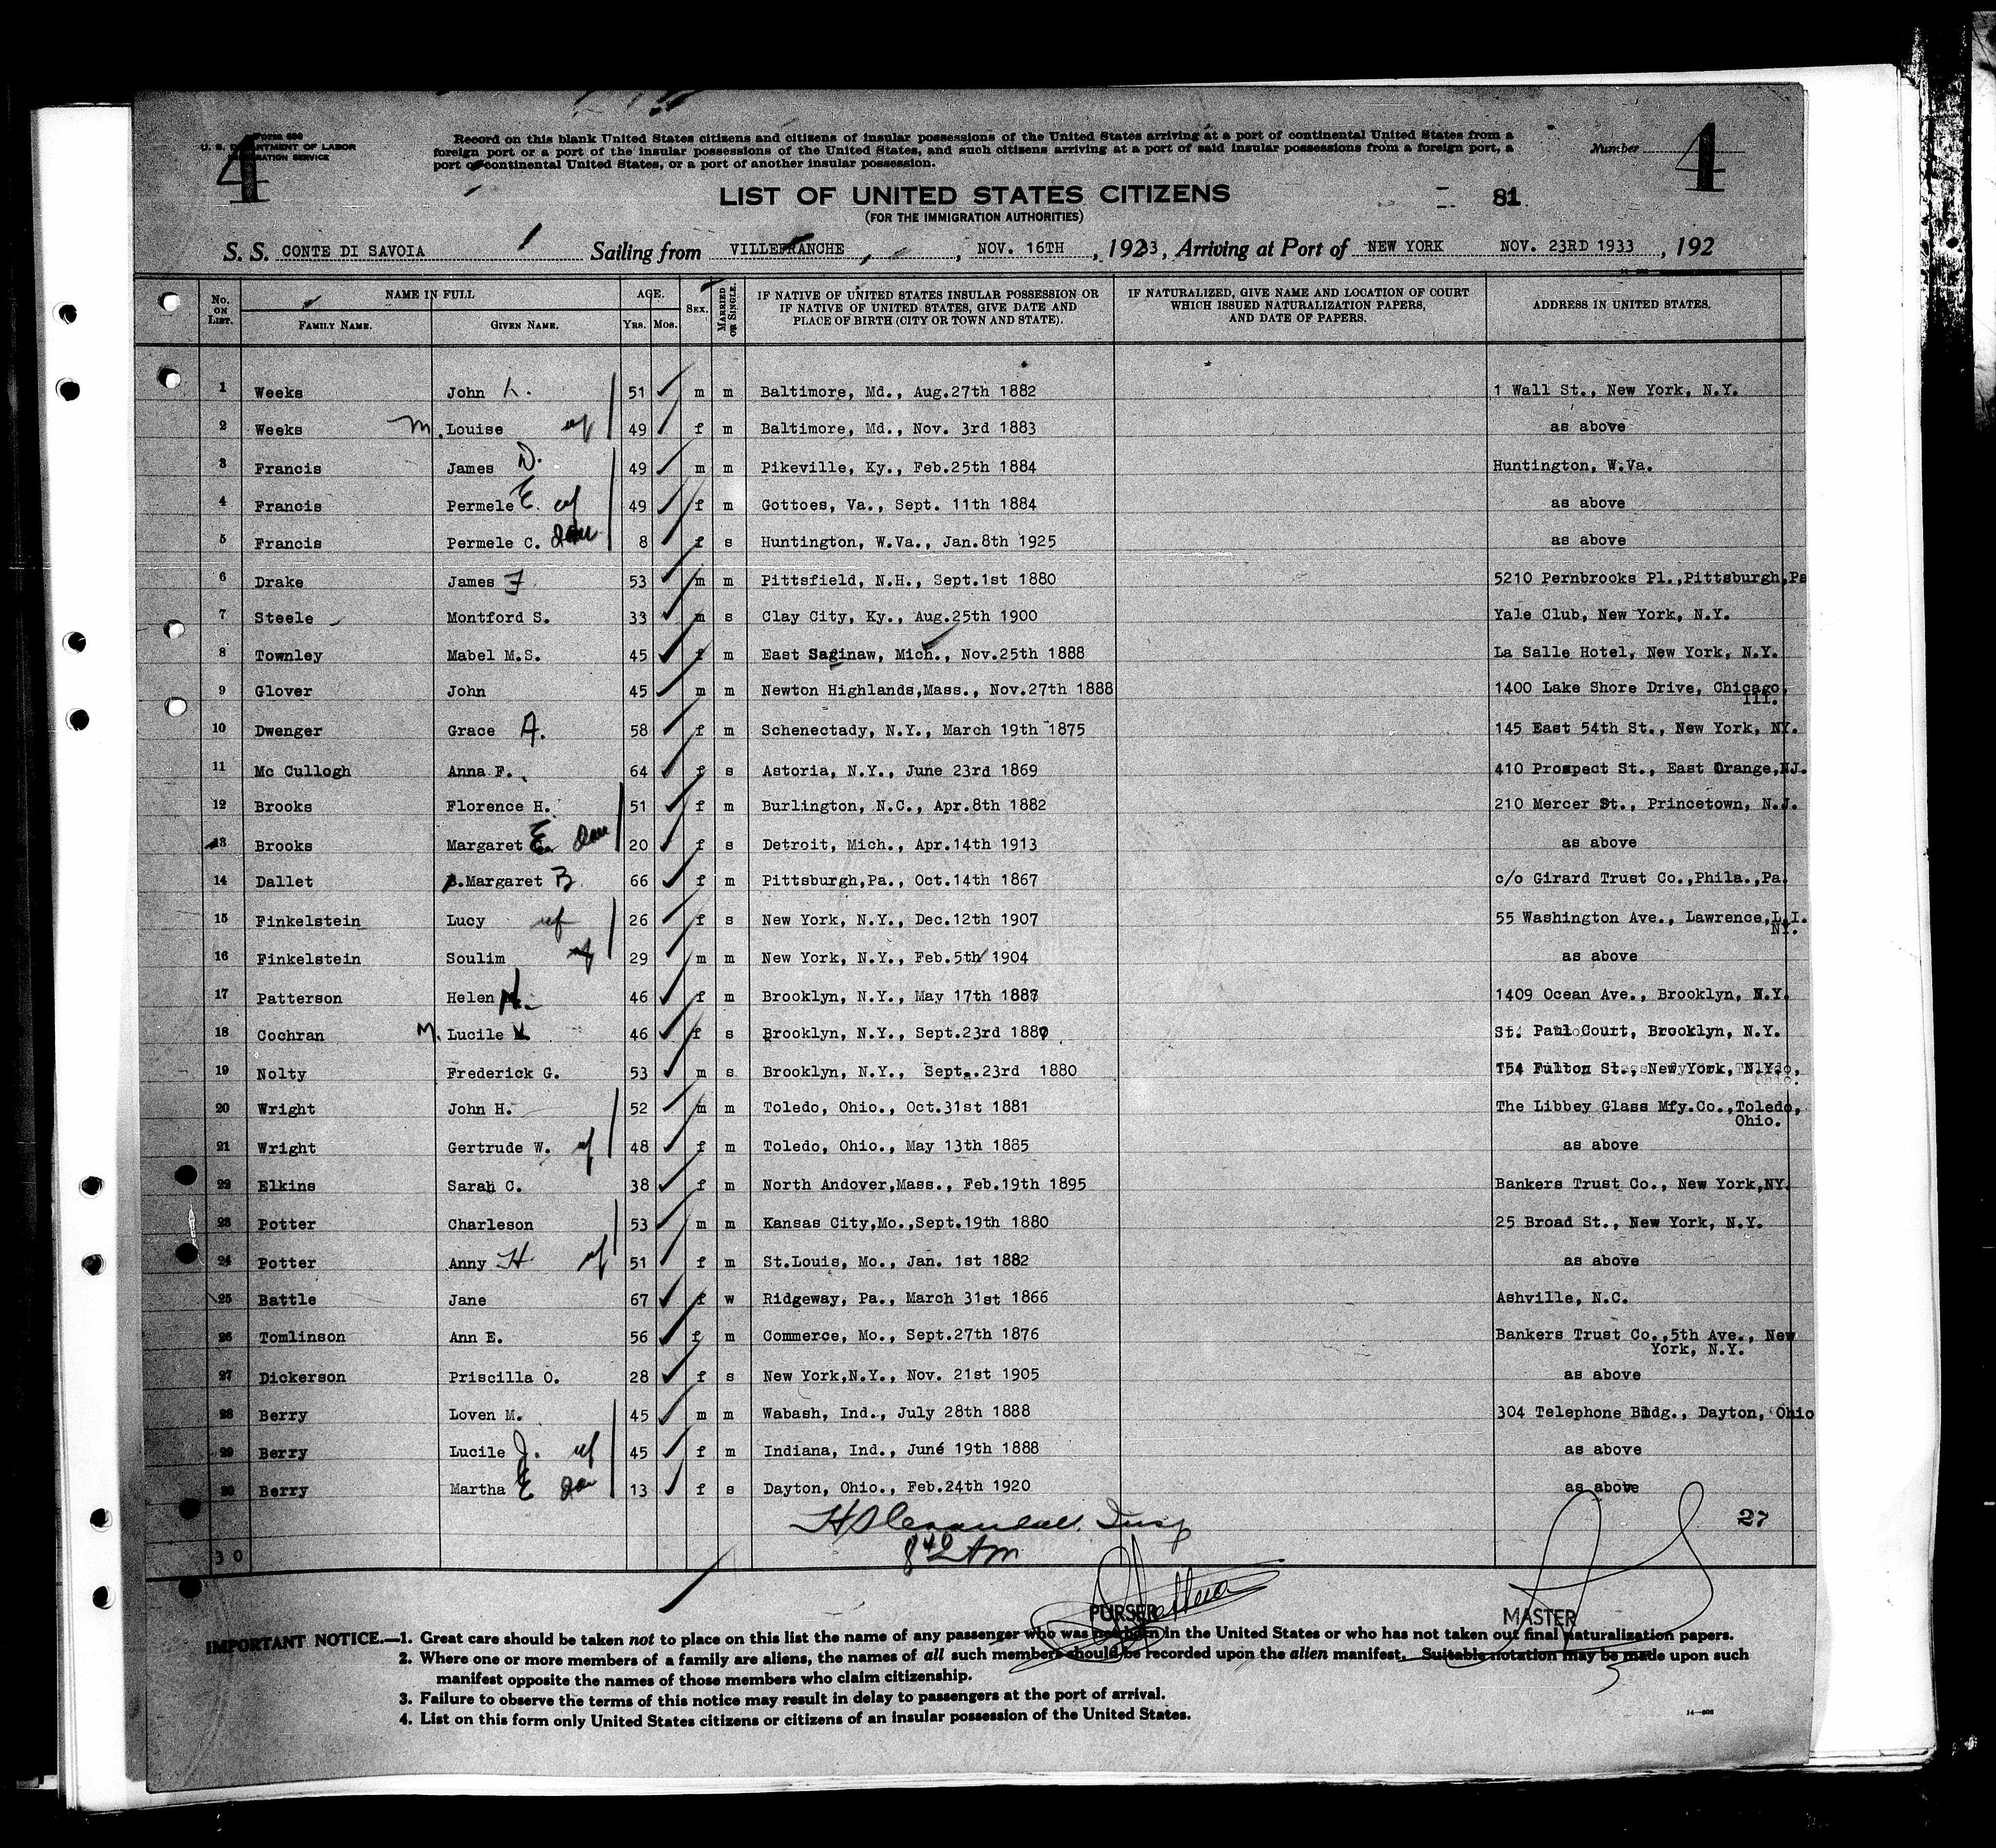 4
Form 630
U. S. DEPARTMENT OF LABOR
IMMIGRATION SERVICE
Record on this blank United States citizens and citizens of insular possessions of the United States arriving at a port of continental United States from a
foreign port or a port of the insular possessions of the United States, and such citizens arriving at a port of said insular possessions from a foreign port, a
port of continental United States, or a port of another insular possession.
Number
4
LIST OF UNITED STATES CITIZENS
81
(FOR THE IMMIGRATION AUTHORITIES)
S. S. CONTE DI SAVOIA Sailing from VILLEFRANCHE, NOV. 16TH, 1933, Arriving at Port of NEW YORK NOV. 23RD 1933, 192
No. ON LIST. NAME IN FULL FAMILY NAME. GIVEN NAME. AGE. YRS. MOS. SEX. MARRIED OR SINGLE. IF NATIVE OF UNITED STATES INSULAR POSSESSION OR IF NATIVE OF UNITED STATES, GIVE DATE AND PLACE OF BIRTH (CITY OR TOWN AND STATE). IF NATURALIZED, GIVE NAME AND LOCATION OF COURT WHICH ISSUED NATURALIZATION PAPERS, AND DATE OF PAPERS. ADDRESS IN UNITED STATES.
1 Weeks John L. 51 m m Baltimore, Md., Aug.27th 1882 1 Wall St., New York, N.Y.
2 Weeks M. Louise wf 49 f m Baltimore, Md., Nov. 3rd 1883 as above
3 Francis James D. 49 m m Pikeville, Ky., Feb.25th 1884 Huntington, W.Va.
4 Francis Permele E. wf 49 f m Gottoes, Va., Sept. 11th 1884 as above
5 Francis Permele C. dau 8 f s Huntington, W.Va., Jan.8th 1925 as above
6 Drake James F 53 m m Pittsfield, N.H., Sept.1st 1880 5210 Pernbrooks Pl.,Pittsburgh,Pa
7 Steele Montford S. 33 m s Clay City, Ky., Aug.25th 1900 Yale Club, New York, N.Y.
8 Townley Mabel M.S. 45 f m East Saginaw, Mich., Nov.25th 1888 La Salle Hotel, New York, N.Y.
9 Glover John 45 m m Newton Highlands,Mass., Nov.27th 1888 1400 Lake Shore Drive, Chicago, Ill.
10 Dwenger Grace A. 58 f m Schenectady, N.Y., March 19th 1875 145 East 54th St., New York, NY.
11 Mc Cullogh Anna F. 64 f s Astoria, N.Y., June 23rd 1869 410 Prospect St., East Orange,NJ.
12 Brooks Florence H. 51 f m Burlington, N.C., Apr.8th 1882 210 Mercer St., Princetown, N.J.
13 Brooks Margaret E. dau 20 f s Detroit, Mich., Apr.14th 1913 as above
14 Dallet Margaret B 66 f m Pittsburgh,Pa., Oct.14th 1867 c/o Girard Trust Co.,Phila.,Pa.
15 Finkelstein Lucy wf 26 f s New York, N.Y., Dec.12th 1907 55 Washington Ave., Lawrence,L.I. NY.
16 Finkelstein Soulim 29 m m New York, N.Y., Feb.5th 1904 as above
17 Patterson Helen 46 f m Brooklyn, N.Y., May 17th 1887 1409 Ocean Ave., Brooklyn, N.Y.
18 Cochran M. Lucile 46 f s Brooklyn, N.Y., Sept.23rd St. Paul Court, Brooklyn, N.Y.
19 Nolty Frederick G. 53 m s Brooklyn, N.Y., Sept.23rd 1880 154 Fulton St., New York, N.Y.
20 Wright John H. 52 m m Toledo, Ohio., Oct.31st 1881 The Libbey Glass Mfy.Co.,Toledo, Ohio.
21 Wright Gertrude W. wf 48 f m Toledo, Ohio., May 13th 1885 as above
22 Elkins Sarah C. 38 f m North Andover,Mass., Feb.19th 1895 Bankers Trust Co., New York,NY.
23 Potter Charleson 53 m m Kansas City,Mo.,Sept.19th 1880 25 Broad St., New York, N.Y.
24 Potter Anny H wf 51 f m St.Louis, Mo., Jan. 1st 1882 as above
25 Battle Jane 67 f w Ridgeway, Pa., March 31st 1866 Ashville, N.C.
26 Tomlinson Ann E. 56 f m Commerce, Mo., Sept.27th 1876 Bankers Trust Co.,5th Ave., New York, N.Y.
27 Dickerson Priscilla O. 28 f s New York,N.Y., Nov. 21st 1905 as above
28 Berry Loven M. 45 m m Wabash, Ind., July 28th 1888 304 Telephone Bldg., Dayton, Ohio
29 Berry Lucile J. wf 45 f m Indiana, Ind., June 19th 1888 as above
30 Berry Martha E dau 13 f s Dayton, Ohio., Feb.24th 1920 as above
27
30
PURSER
MASTER
IMPORTANT NOTICE.—1. Great care should be taken not to place on this list the name of any passenger who was not born in the United States or who has not taken out final naturalization papers.
2. Where one or more members of a family are aliens, the names of all such members should be recorded upon the alien manifest. Suitable notation may be made upon such
manifest opposite the names of those members who claim citizenship.
3. Failure to observe the terms of this notice may result in delay to passengers at the port of arrival.
4. List on this form only United States citizens or citizens of an insular possession of the United States.